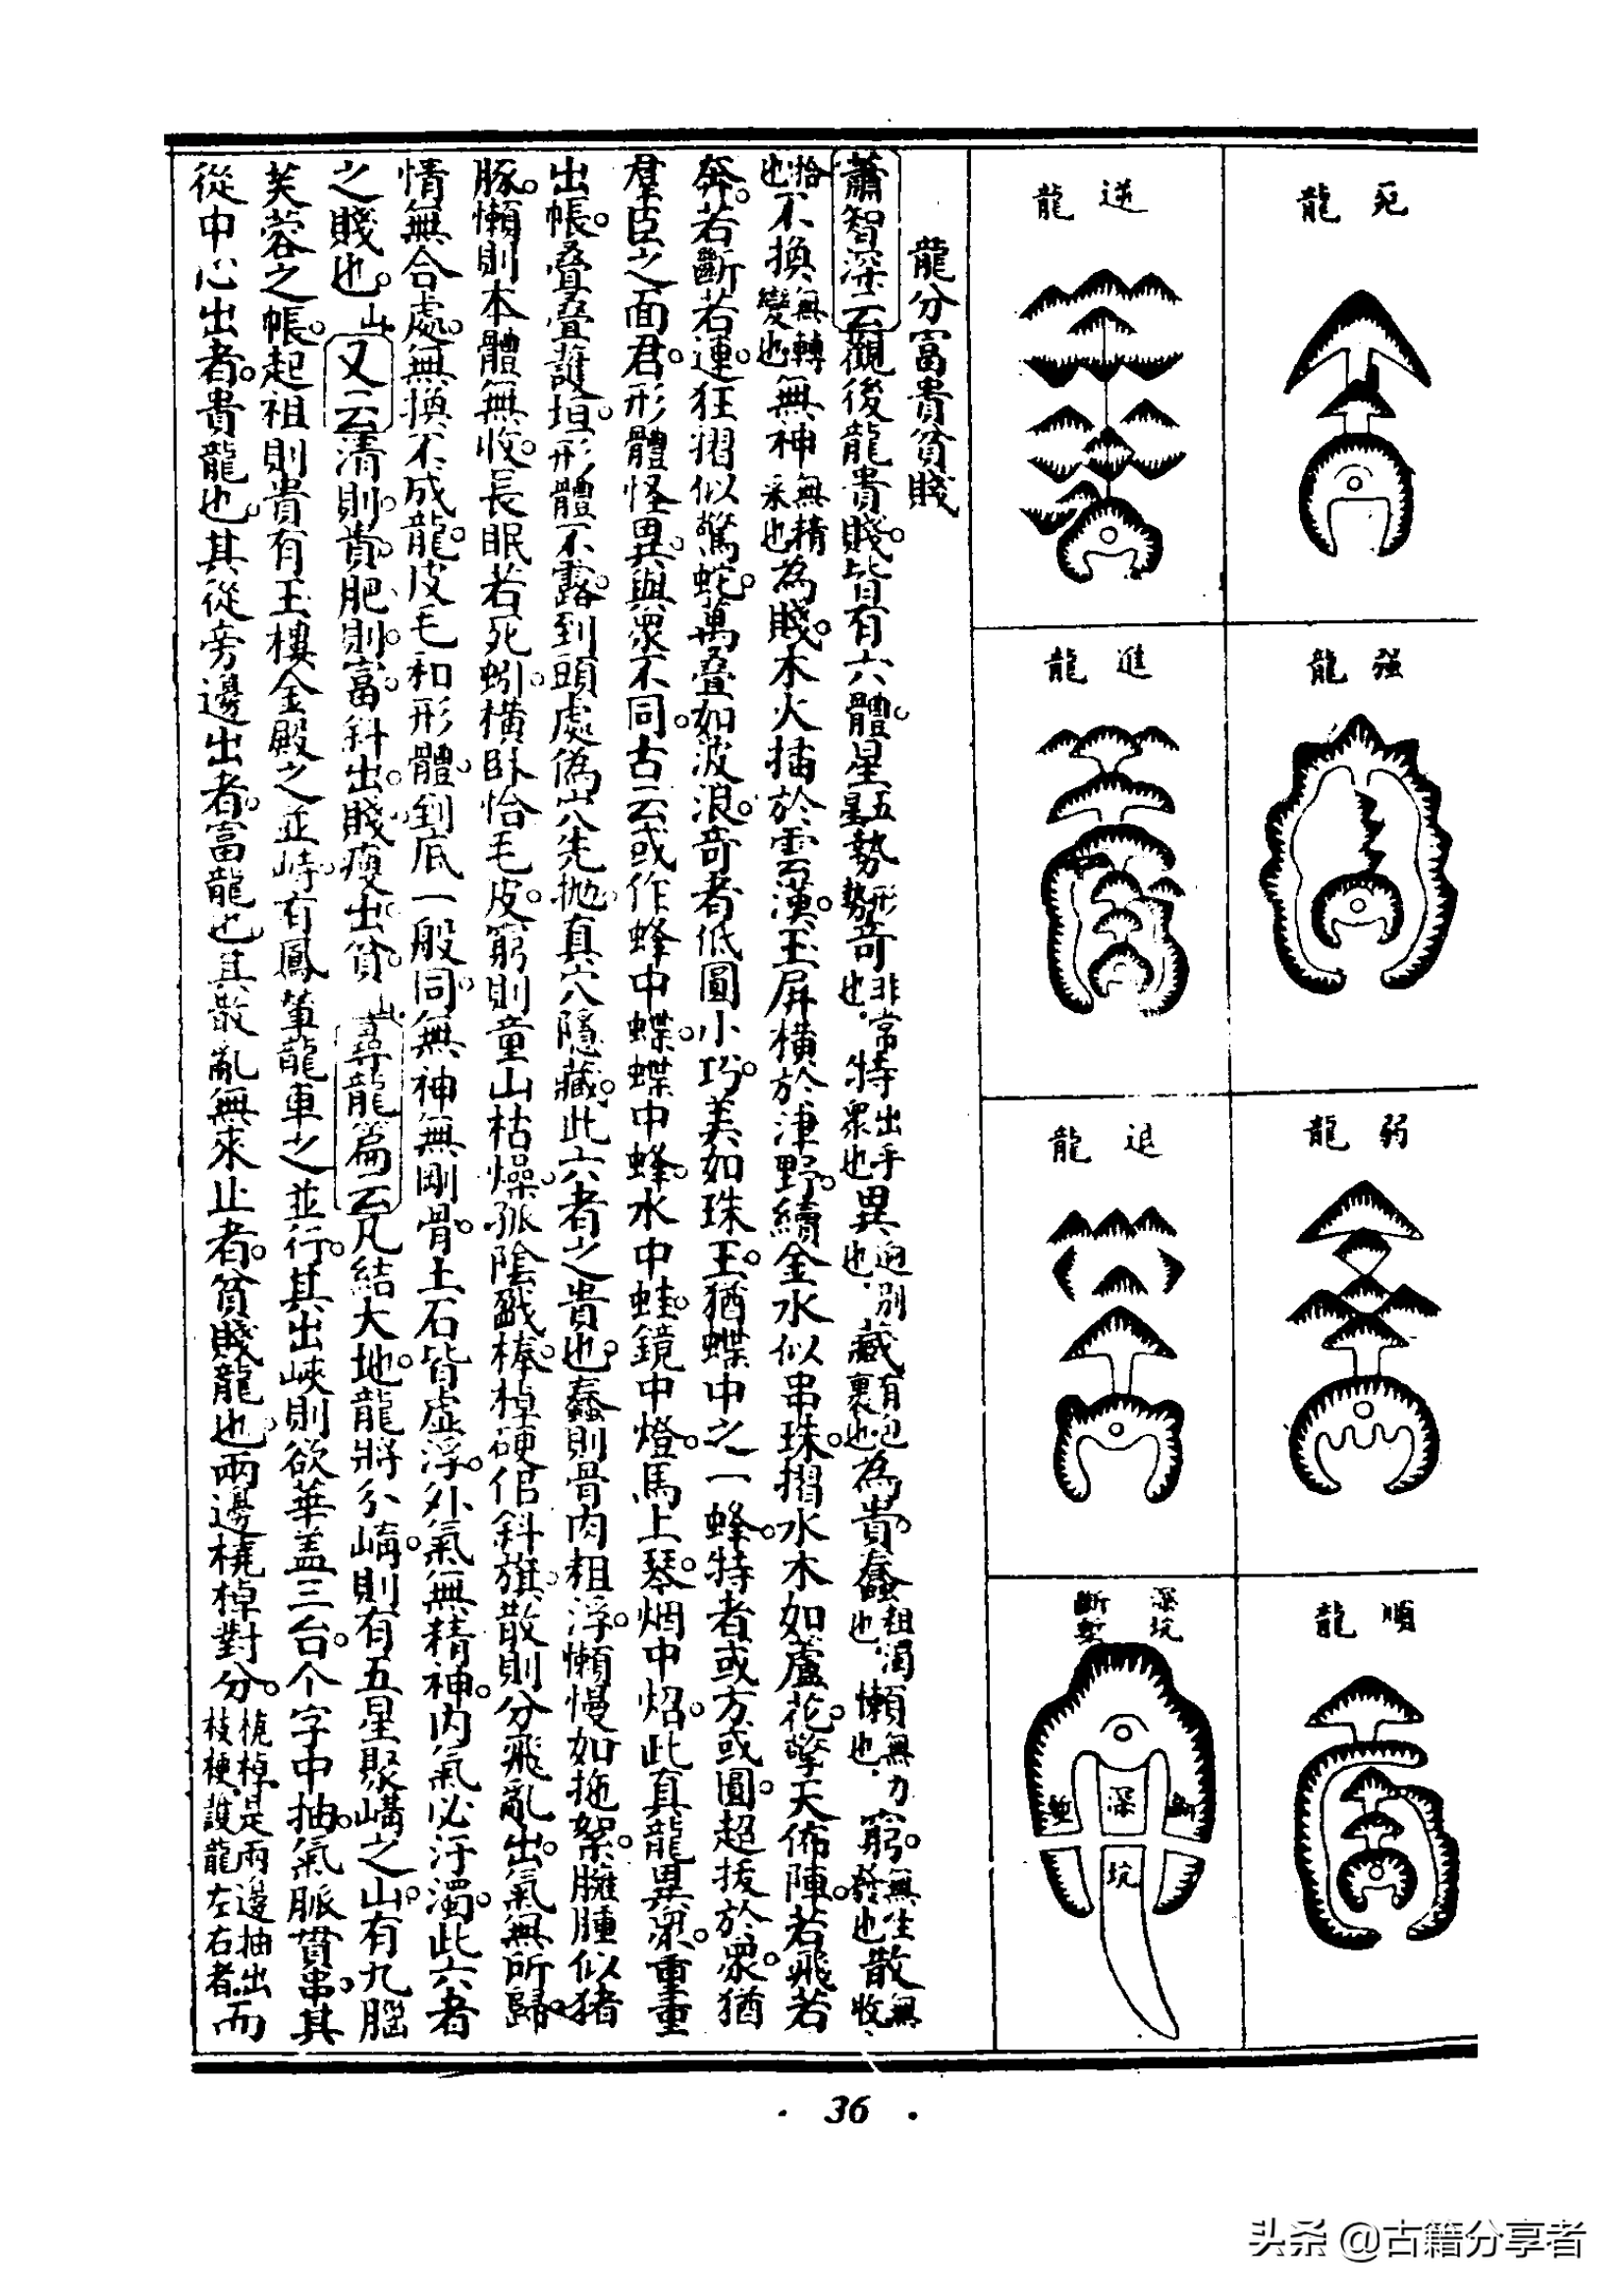 死龍
强龍
弱龍
順龍
逆龍
進龍
退龍
深坑
斷塹
斷
深
塹
坑
龍分富貴貧賤
蕭智深云觀後龍貴賤皆有六體星五星勢形勢奇非常也特出乎衆也異迥别也藏有包裹也為貴蠢粗濁也懶無力也窮無生發也散無收
拾也不換無轉變也無神無精采也為賤木火插於雲漢玉屏橫於津野續金水似串珠摺水木如蘆花擎天佈陣若飛若
奔若斷若連狂摺似驚蛇萬叠如波浪奇者低圓小巧美如珠玉猶蝶中之一蜂特者或方或圓超拔於衆猶
羣臣之面君形體怪異與衆不同古云或作蜂中蝶蝶中蜂水中蛙鏡中燈馬上琴烟中焰此真龍異衆重重
出帳叠叠護垣形體不露到頭處偽穴先拋真穴隱藏此六者之貴也蠢則骨肉粗浮懶慢如拖絮臃腫似猪
豚懶則本體無收長眠若死蚓橫卧怡毛皮窮則童山枯燥孤陰戤棒棹硬倌斜旗散則分飛亂出氣無所歸
情無合處無換不成龍皮毛和形體到底一般同無神無剛骨土石皆虛浮外氣無精神内氣必汙濁此六者
之賤也又云清則貴肥則富斜出賤瘦出貧尋龍篇云凡結大地龍將分崅則有五星聚嶹之山有九腦
芙蓉之帳起祖則貴有玉樓金殿之並峙有鳳輦龍車之並行其出峽則欲華盖三台个字中抽氣脈貫串其
從中心出者貴龍也其從旁邊出者富龍也其散亂無來止者貧賤龍也兩邊橈棹對分橈棹是兩邊抽出枝梗護龍左右者而
· 36 ·
头条 @古籍分享者